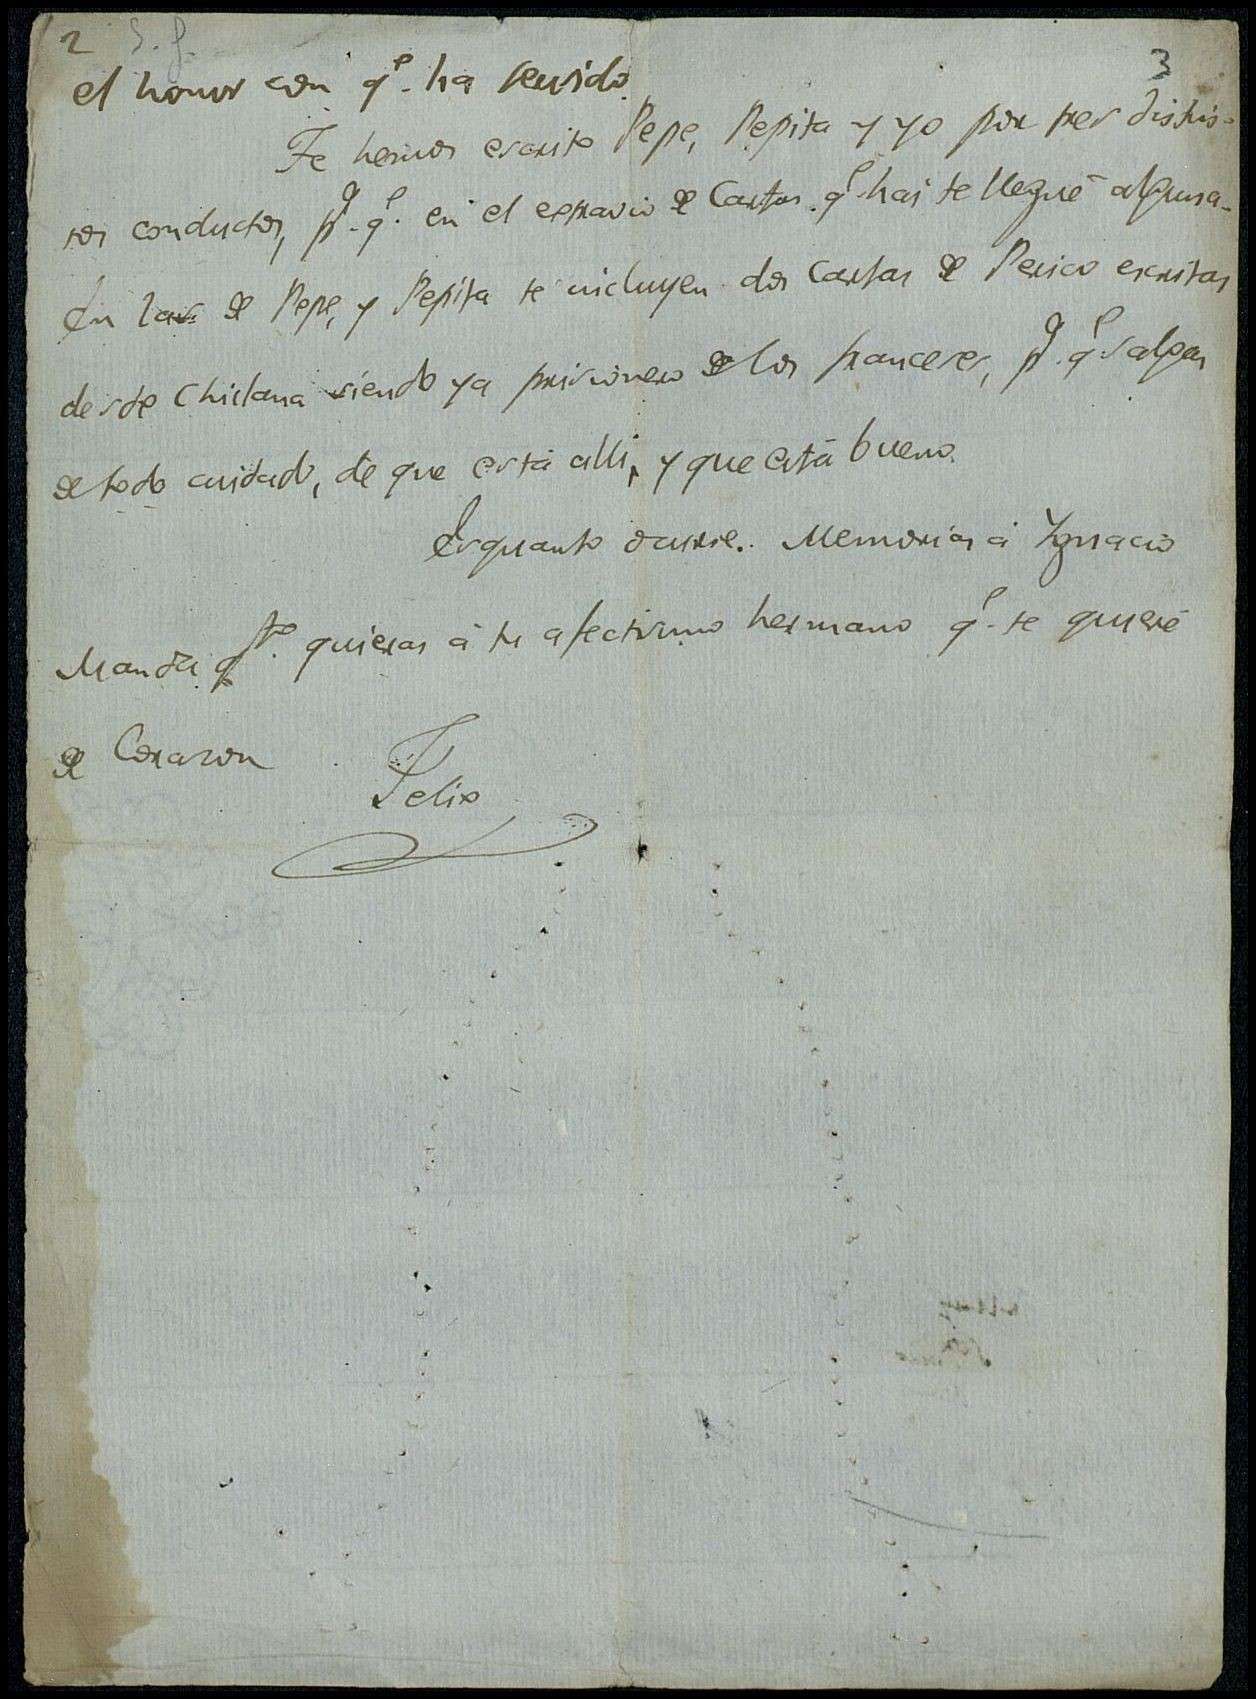 2 S. f.
3
el honor con q.e ha servido.
Te hemos escrito Pepe, Pepita y yo por tres distin-
tos conductos, p.a q.e en el extravio de Cartas q.e hai te llegue alguna.
En las de Pepe, y Pepita te incluyen dos Cartas de Perico escritas
desde Chiclana siendo ya prisionero de los franceses, p.a q.e salgas
de todo cuidado, de que està alli, y que està bueno.
Es quanto ocurre. Memorias á Ygnacio
Manda q.to quieras á tu afectisimo hermano q.e te quiere
de Corazon
Felix